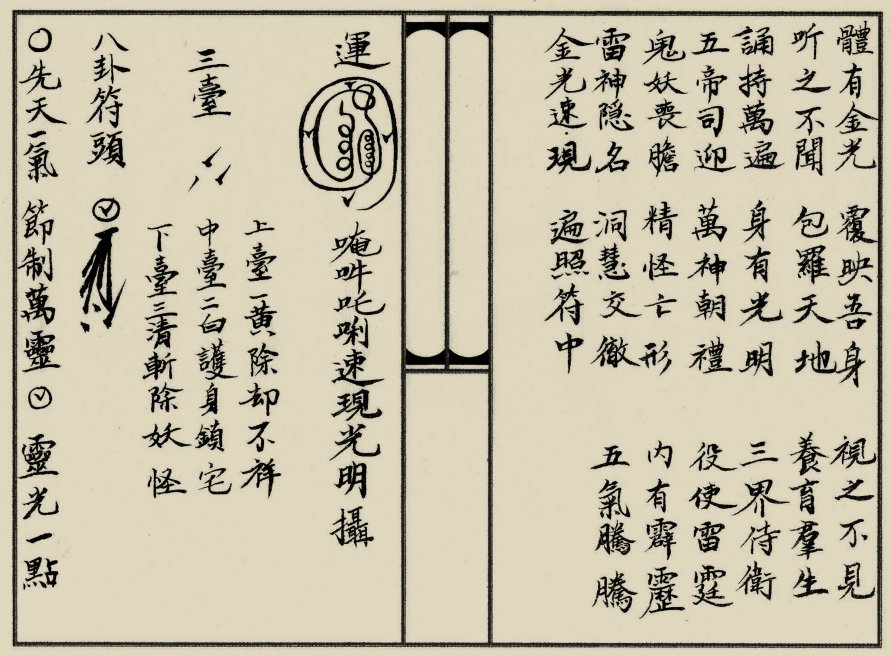 體有金光 覆映吾身 視之不見
听之不聞 包羅天地 養育羣生
誦持萬遍 身有光明 三界侍衛
五帝司迎 萬神朝禮 役使雷霆
鬼妖喪膽 精怪亡形 内有霹靂
雷神隐名 洞慧交徹 五氣騰騰
金光速現 遍照符中
運 唵吽吒唎速現光明攝
三臺
上臺一黄除却不祥
中臺二白護身鎮宅
下臺三清斬除妖怪
八卦符頭
〇先天一氣 節制萬靈 靈光一點